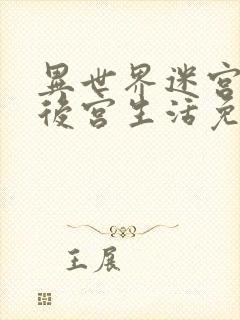 異世界迷宮
後宮生活免
王展